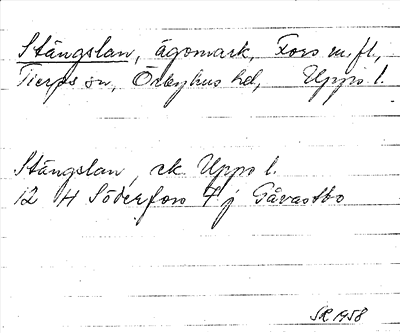 Stängslan, ägomark, Fors m. fl.,
Tierps sn, Örbyhus hd, Upps. l.
Stängslan, ek. Upps l.
12 H Söderfors 7 j Gåvastbo
SR 1958